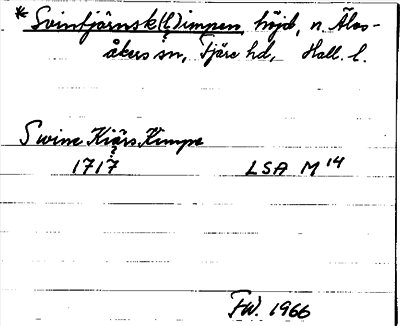 * Svintjärnsk(l)impen, höjd, n. Älvs-
åkers sn, Fjäre hd, Hall. l.
Swine Kiärs Kimpe
1717 LSA M 14
FW. 1966